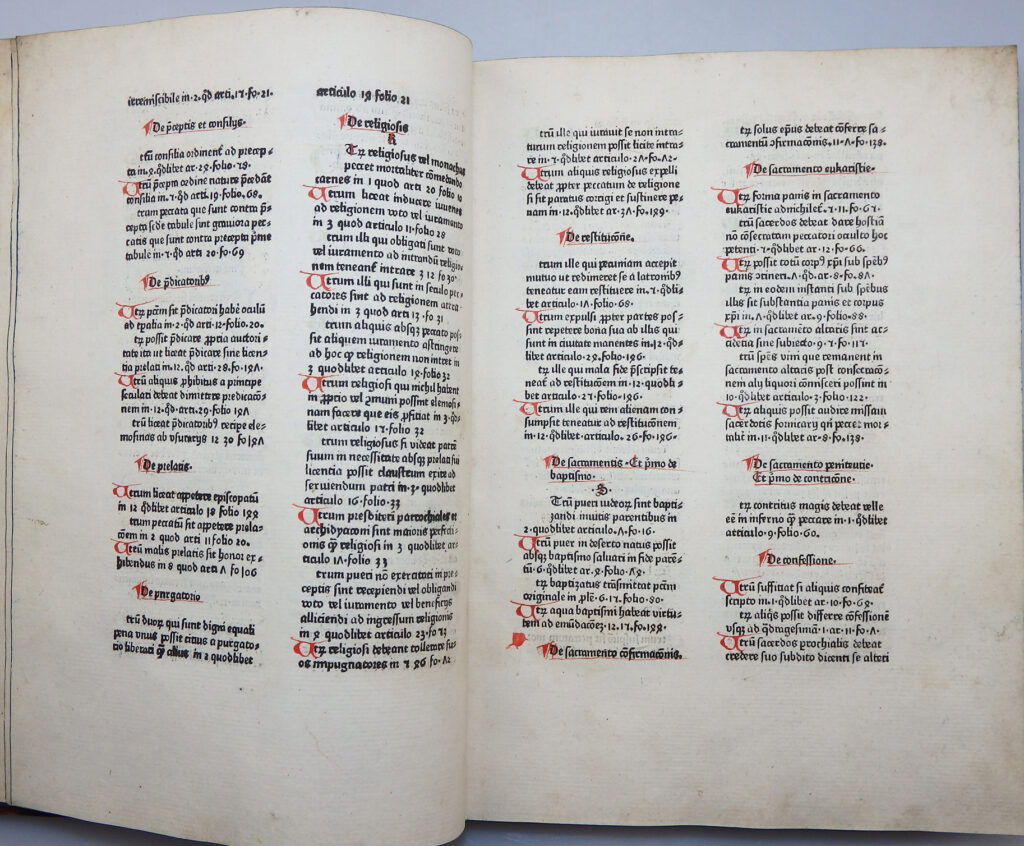 irremiscibile in·2·q̄d arti·17·fo·21·
De p̄ceptis et consilijs·
trū consilia ordinent̄ ad precep-
ta in·9·quodlibet ar·29·folio·78·
Utrū p̄cepta ordine nature p̄cedant
consilia in·7·q̄d arti·19·folio·68·
trum peccata que sunt contra p̄-
cepta sc̄de tabule sint grauiora pec-
catis que sunt contra precepta p̄me
tabule in·7·q̄d arti 20·fo·69
De p̄dicatoribꝰ
Utꝝ
ad tp̄alia in·2·q̄d arti·12·folio·20·
tꝝ possit p̄dicare ꝓpria auctori-
tate ita ut liceat p̄dicare sine licen-
tia prelati in·12·q̄d arti·28·fo·19Λ·
Utrū aliquis ꝓhibitus a principe
seculari debeat dimittere predicacō-
nem in·12·q̄d·arti·29·folio 19Λ
trū liceat p̄dicatoribꝰ recipe ele-
mosinas ab vsurarijs 12 30 fo 19Λ
De prelatis·
Utrum liceat appetere episcopatū
in 12 q̄dlibet articulo 18 folio 199
trum peccatū sit appetere prela-
cōem in 2 quod arti 11 folio 20·
Utrū malis prelatis sit honor ex-
hibendus in 8 quod arti Λ fo 106
De purgatorio
trū duorꝝ qui sunt digni equali
pena vnus possit citius a purgato-
rio liberari ꝙ alius in 2 quodlibet
articulo 19 folio 21
De religiosis
R
Tꝝ religiosus vel monachus
peccet mortaliter cōmedendo
carnes in 1 quod arti 20 folio 10
Utrum liceat inducere iuuenes
ad religionem voto vel iuramento
in 3 quod articulo 11 folio 28
trum illi qui obligati sunt voto
vel iuramento ad intrandū religio-
nem teneant̄ intrare 3 12 fo 30
Utrum illi qui sunt in seculo pec-
catores sint ad religionem attra-
hendi in 3 quod arti 13 fo 31
trum aliquis absqꝫ peccato pos-
sit aliquem iuramento astringere
ad hoc ꝙ religionem non intret in
3 quodlibet articulo 19 folio 32
Utrum religiosi qui nichil habent
in ꝓprio vel cōmuni possint elemosi-
nam facere que eis ꝓficiat in 3 quod-
libet articulo 17 folio 32
trum religiosus si videat patrē
suum in necessitate absqꝫ prelati sui
licentia possit claustrum exire ad
seruiendum patri in 3 quodlibet
articulo 16 folio 33
Utrum presbiteri parrochiales et
archidyaconi sint maioris perfecti-
onis ꝙ religiosi in 3 quodlibet ar-
ticulo 1Λ folio 33
trum pueri nō exercitati in pre-
ceptis sint recipiendi vel obligandi
voto vel iuramento vel beneficijs
alliciendi ad ingressum religionis
in 9 quodlibet articulo 23 fo 73
Utꝝ religiosi debeant tollerare su-
os impugnatores in 7 26 fo Λ2
trū ille qui iurauit se non intra-
turum religionem possit licite intra-
re in·7·q̄dlibet articulo·2Λ·fo·Λ2·
Utrum aliquis religiosus expelli
debeat ꝓpter peccatum de religione
si sit paratus corrigi et sustinere pe-
nam in·12·q̄dlibet·ar·3Λ·fo·199·
De restitucōne·
trum ille qui pecuniam accepit
mutuo ut redimeret se a latronibꝰ
teneatur eam restituere in·7·q̄dli-
bet articulo·1Λ·folio·68·
Utrum expulsi ꝓpter partes pos-
sint repetere bona sua ab illis qui
sunt in ciuitate manentes in·12·q̄d-
libet articulo·29·folio·196·
tꝝ ille qui mala fide p̄scripsit te-
neat̄ ad restitucōem in·12·quodli-
bet articulo·27·folio·196·
Utrum ille qui rem alienam con-
sumpsit teneatur ad restitucōnem
in·12·q̄dlibet·articulo·26·fo·196·
De sacramentis·Et p̄mo de
baptismo·
S
Trū pueri iudeoꝝ sint bapti-
zandi inuitis parentibus in
2·quodlibet articulo·Λ·fo·16·
Utrū puer in deserto natus possit
absqꝫ baptismo saluari in fide parē-
tū·6·q̄dlibet ar·9·folio·79·
tꝝ baptizatus trāsmittat pc̄m
originale in ple·6·17·folio·80·
Utꝝ aqua baptismi habeat virtu-
tem ad emūdacōeꝫ·12·17·fo·199·
De sacramento cōfirmacōnis·
tꝝ solus ep̄us debeat cōferre sa-
cramentū ꝯfirmacōnis·11·Λ·fo·138·
De sacramento eukaristie·
Utꝝ forma panis in sacramento
eukaristie adnichilet̄·7·11·fo·67·
trū sacerdos debeat dare hostiā
nō cōsecratam peccatori occulto hoc
petenti·7·q̄dlibet·ar·12·fo·66·
Utꝝ possit totū corpꝰ xp̄i sub sp̄ebꝰ
panis ꝯtineri·Λ·q̄d·ar·8·fo·8Λ·
tꝝ in eodem instanti sub sp̄ebus
illis sit substantia panis et corpus
xp̄i in·Λ·q̄dlibet ar·9·folio·88·
Utꝝ in sacramēto altaris sint ac-
cidētia sine subiecto·9·7·fo·117·
trū sp̄es vini que remanent in
sacramento altaris post consecracō-
nem alij liquori cōmisceri possint in
10·q̄dlibet articulo·3·folio·122·
Utꝝ aliquis possit audire missam
sacerdotis fornicarij qn̄ peccet mor-
talit̄ in·11·q̄dlibet·ar·8·fo·138·
De sacramento penitentie·
Et p̄mo de contricōne·
tꝝ contritus magis debeat velle
eē in inferno ꝙ peccare in·1·q̄dlibet
articulo·9·folio·60·
De confessione·
Utrū sufficiat si aliquis confiteat̄
scripto in·1·q̄dlibet ar·10·fo·69·
tꝝ aliq̄s possit differre cōfessionē
vsqꝫ ad q̄dragesimā·1·ar·11·fo·Λ·
Utrū sacerdos ꝑrochialis debeat
credere suo subdito dicenti se alteri